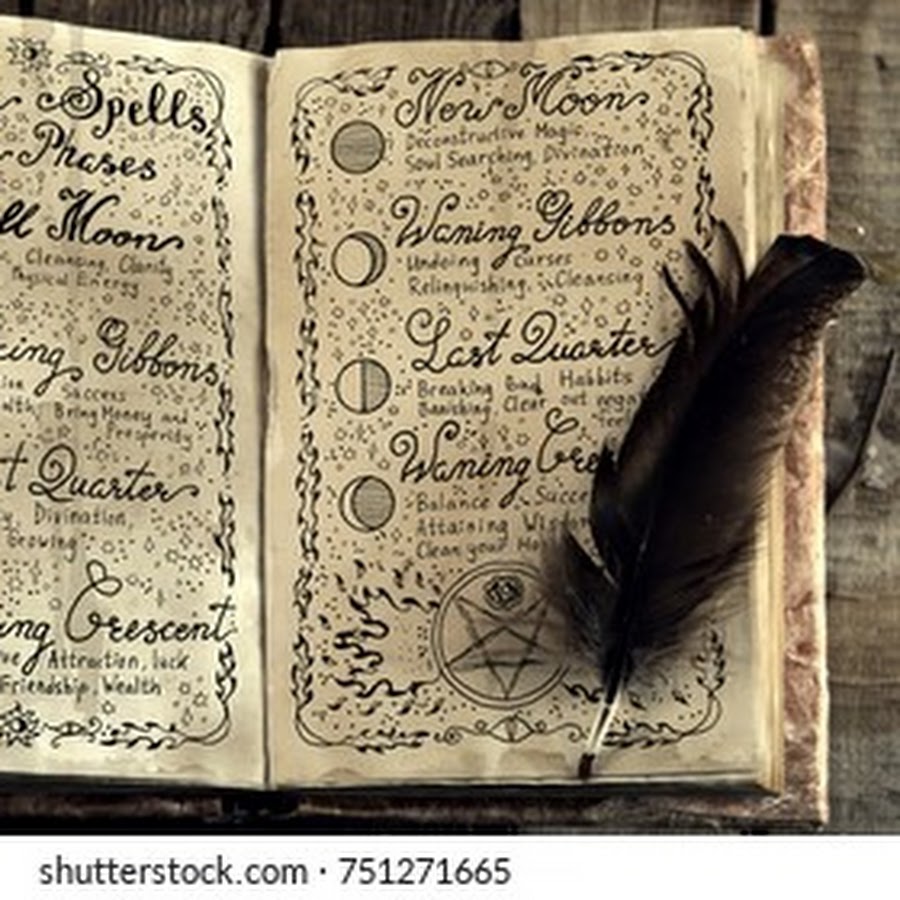 Spells
Phases
ll Moon
Cleansing, Clarity
Physical Energy
cing Gibbons
Success
lth, Bring Money and
Prosperity
t Quarter
Divination,
Growing
ing Crescent
Attraction, luck
Friendship, Wealth
New Moon
Deconstructive Magic
Soul Searching, Divination
Waning Gibbons
Undoing Curses
Relinquishing, Cleansing
Last Quarter
Breaking Bad Habbits
Banishing, Clear out nega
Waning Cre
Balance, Succe
Attaining Wisdom
Clean your Ho
shutterstock.com · 751271665